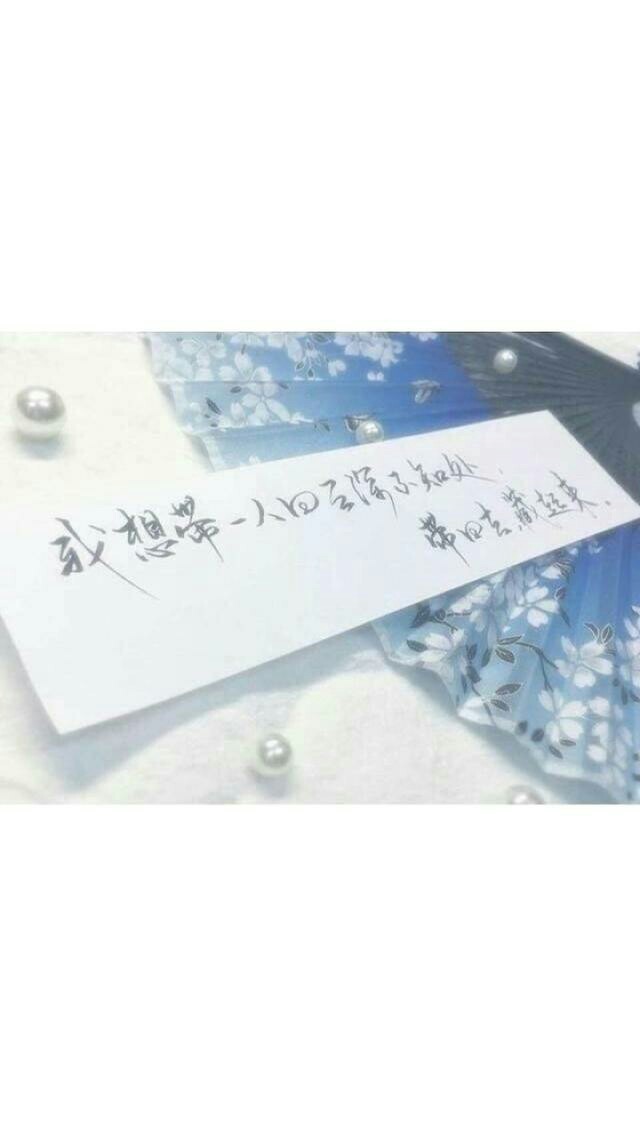 我想带一人回云深不知处，
带回去藏起来.